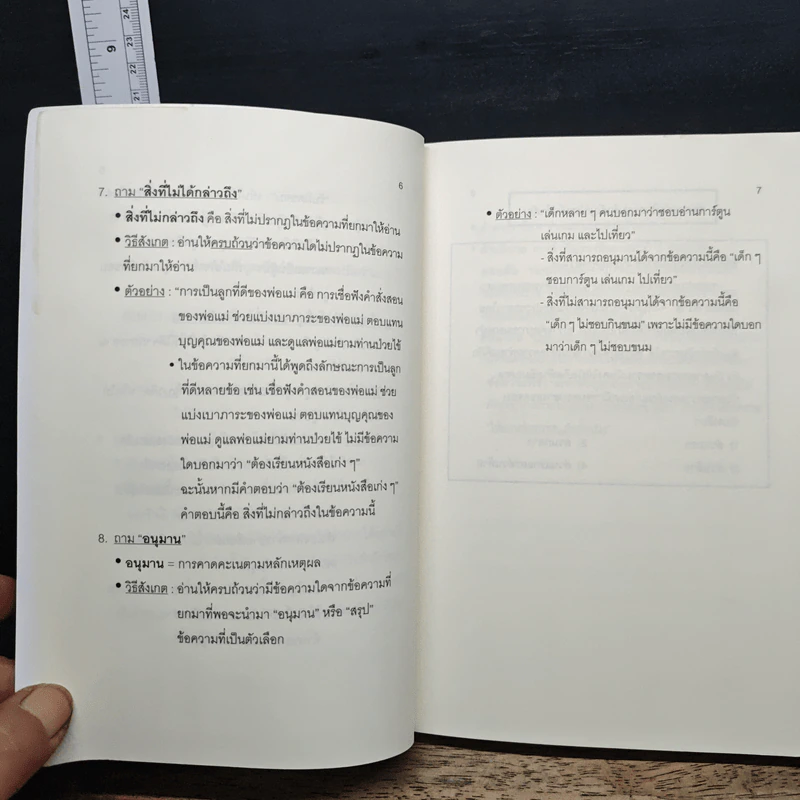 24
9
23
22
21
6
7. ถาม "สิ่งที่ไม่ได้กล่าวถึง"
• สิ่งที่ไม่กล่าวถึง คือ สิ่งที่ไม่ปรากฏในข้อความที่ยกมาให้อ่าน
• วิธีสังเกต : อ่านให้ครบถ้วนว่าข้อความใดไม่ปรากฏในข้อความ
ที่ยกมาให้อ่าน
• ตัวอย่าง : "การเป็นลูกที่ดีของพ่อแม่ คือ การเชื่อฟังคำสั่งสอน
ของพ่อแม่ ช่วยแบ่งเบาภาระของพ่อแม่ ตอบแทน
บุญคุณของพ่อแม่ และดูแลพ่อแม่ยามท่านป่วยไข้
• ในข้อความที่ยกมานี้ได้พูดถึงลักษณะการเป็นลูก
ที่ดีหลายข้อ เช่น เชื่อฟังคำสอนของพ่อแม่ ช่วย
แบ่งเบาภาระของพ่อแม่ ตอบแทนบุญคุณของ
พ่อแม่ ดูแลพ่อแม่ยามท่านป่วยไข้ ไม่มีข้อความ
ใดบอกมาว่า "ต้องเรียนหนังสือเก่ง ๆ"
ฉะนั้นหากมีคำตอบว่า "ต้องเรียนหนังสือเก่ง ๆ"
คำตอบนี้คือ สิ่งที่ไม่กล่าวถึงในข้อความนี้
8. ถาม "อนุมาน"
• อนุมาน = การคาดคะเนตามหลักเหตุผล
• วิธีสังเกต : อ่านให้ครบถ้วนว่ามีข้อความใดจากข้อความที่
ยกมาที่พอจะนำมา "อนุมาน" หรือ "สรุป"
ข้อความที่เป็นตัวเลือก
7
• ตัวอย่าง : "เด็กหลาย ๆ คนบอกมาว่าชอบอ่านการ์ตูน
เล่นเกม และไปเที่ยว"
- สิ่งที่สามารถอนุมานได้จากข้อความนี้คือ "เด็ก ๆ
ชอบการ์ตูน เล่นเกม ไปเที่ยว"
- สิ่งที่ไม่สามารถอนุมานได้จากข้อความนี้คือ
"เด็ก ๆ ไม่ชอบกินขนม" เพราะไม่มีข้อความใดบอก
มาว่าเด็ก ๆ ไม่ชอบขนม